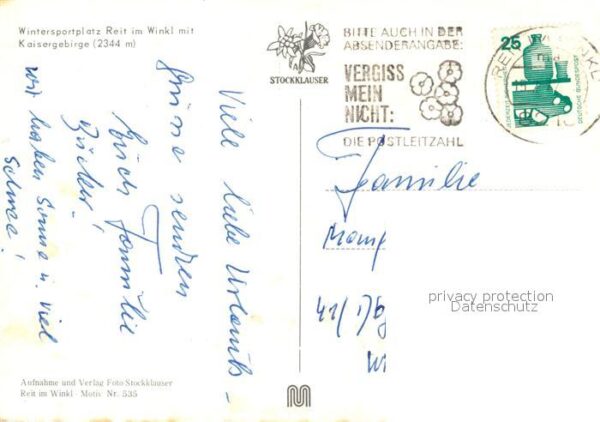 Wintersportplatz Reit im Winkl mit
Kaisergebirge (2344 m)
STOCKKLAUSER
BITTE AUCH IN DER
ABSENDERANGABE:
VERGISS
MEIN
NICHT:
DIE POSTLEITZAHL
25
DEUTSCHE BUNDESPOST
Viele liebe Urlaubs-
grüsse senden
Erich Familie
wir haben Sonne u. viel
Schnee!
Familie
privacy protection
Datenschutz
Aufnahme und Verlag Foto-Stockklauser
Reit im Winkl - Motiv Nr. 535